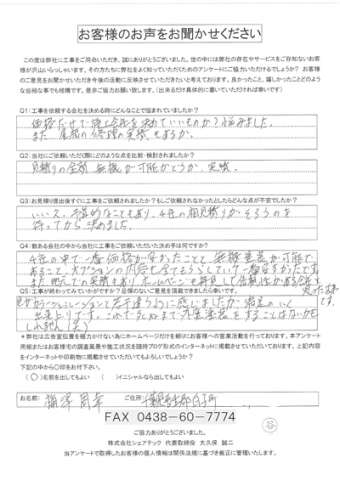 お客様のお声をお聞かせください
この度は弊社に工事をご用命いただき、誠にありがとうございました。世の中には弊社の存在やサービスをご存知ないお客
様が沢山いらっしゃいます。その方たちに弊社をよく知っていただくためのアンケートにご協力いただけるでしょうか？ お客様
のご意見をお聞かせいただき今後の活動に反映させていただきたいと考えております。良かったこと、嬉しかったことどのよう
な些細な事でも結構です。是非ご協力お願い致します。（出来るだけ具体的に書いていただければ幸いです）
Q1：工事を依頼する会社を決める時にどんなことで悩まれていましたか？
価格だけで 会社を決めていいものか？悩みました。
また 屋根の修理の実績もあるか。
Q2：当社にご依頼いただく際にどのような点を比較・検討されましたか？
見積りの金額 無機が可能かどうか 実績
Q3：お見積り提出後すぐに工事をご依頼されましたか？もしご依頼されなかったとしたらどんな点が不安でしたか？
いいえ、予算的なこともあり、4社の相見積りがそろうのを
待ってから決めました。
Q4：数ある会社の中から当社に工事をご依頼いただいた決め手は何ですか？
4社の中で一番価格が安かったことと、無機塗装が可能で
あること、オプションの内容も全てもうらしていて一番
また 実績もあり、ホームページも
Q5：工事が終わってみていかがですか？忌憚のないご意見を頂戴できましたら幸いです。
カラーシュミレーションと若干違うように感じましたが 満足のいく
出来上りです。これで まで外壁塗装をすることはないかも
しれません（笑）
＊弊社は広告宣伝費を極力かけない為にホームページだけを頼りにお客様への営業活動を行っております。本アンケート
用紙またはお客様宅の調査風景や施工状況をインターネットに随時ブログ形式で掲載させていただいております。上記内容
をインターネットや印刷物に掲載させていただいてもよろしいでしょうか？
下記の中から〇印をお付下さい。
（〇）名前を出してもよい （ ）イニシャルなら出してもよい
お名前： ご住所：
FAX 0438-60-7774
ご協力ありがとうございました。
株式会社シェアテック 代表取締役 大久保 誠二
当アンケートで取得したお客様の個人情報は関係法規に基づき厳正に管理いたします。